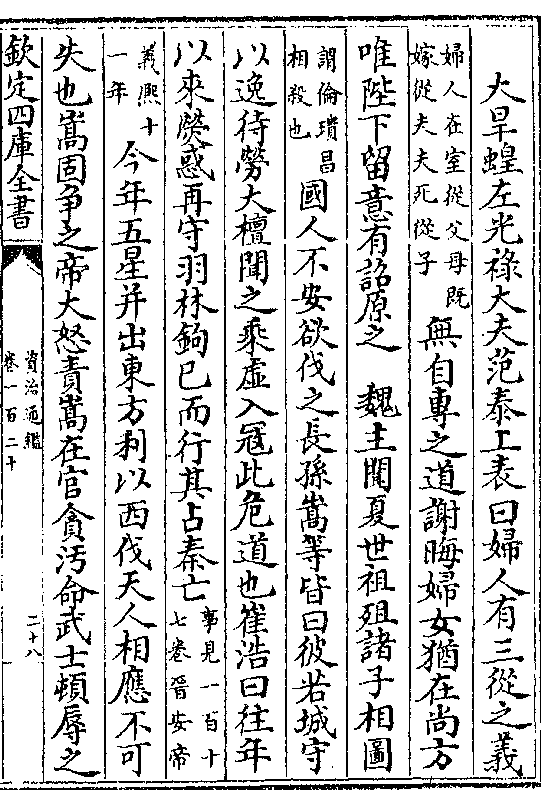 大旱蝗左光祿大夫范泰上表曰婦人有三從之義
婦人在室從父母既
嫁從夫夫死從子
無自專之道謝晦婦女猶在尚方
唯陛下留意有詔原之 魏主聞夏世祖殂諸子相圖
謂倫璝昌
相殺也
國人不安欲伐之長孫嵩等皆曰彼若城守
以逸待勞大檀聞之乘虛入寇此危道也崔浩曰往年
以來熒惑再守羽林鉤巳而行其占秦亡
事見一百十
七卷晉安帝
義熙十
一年
今年五星并出東方利以西伐天人相應不可
失也嵩固争之帝大怒責嵩在官貪汚命武士頓辱之
欽定四庫全書
資治通鑑
卷一百二十
二十八